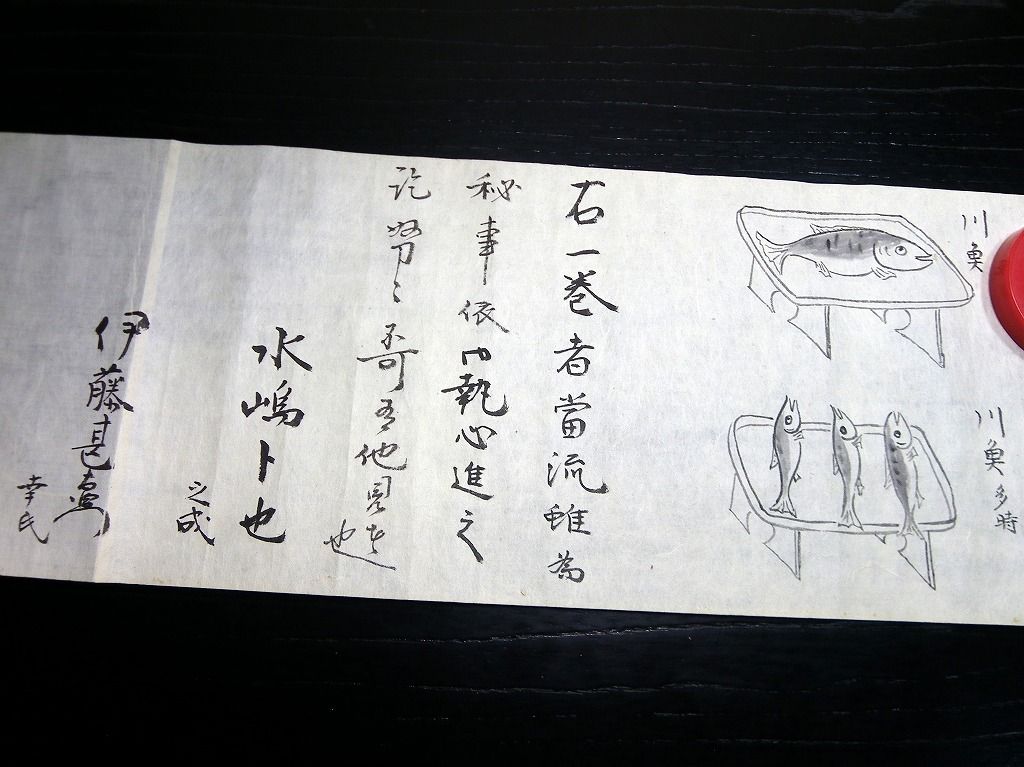 川魚
川魚多時
右一巻者當流雖為
秘事依御執心進之
訖努々不可有他見者
也
水嶋卜也
之成
伊藤甚
幸氏